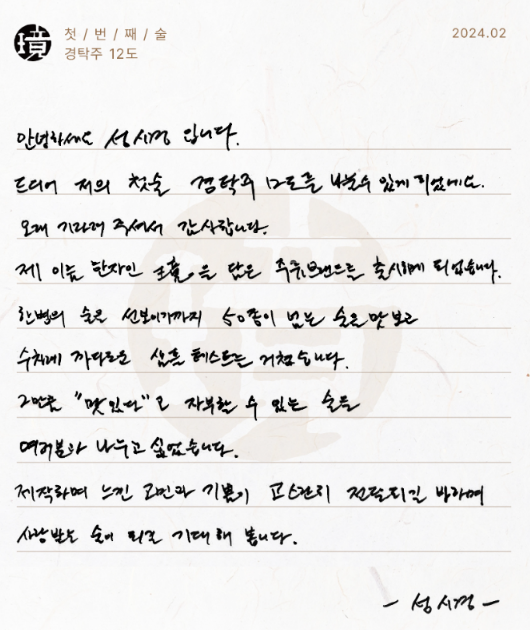 璄
첫 / 번 / 째 / 술
경탁주 12도
2024.02
안녕하세요 성시경 입니다.
드디어 저의 첫술 경탁주 12도를 나눌수 있게 되었네요.
오래 기다려 주셔서 감사합니다.
제 이름 한자인 璄을 담은 주류브랜드를 출시하게 되었습니다.
한병의 술을 선보이기까지 50종이 넘는 술을 맛보고
수차례 까다로운 샘플 테스트를 거쳤습니다.
그만큼 "맛있다"고 자부할 수 있는 술을
여러분과 나누고 싶었습니다.
제작하며 느낀 고민과 기쁨이 고스란히 전달되길 바라며
사랑받는 술이 되길 기대해 봅니다.
- 성시경 -